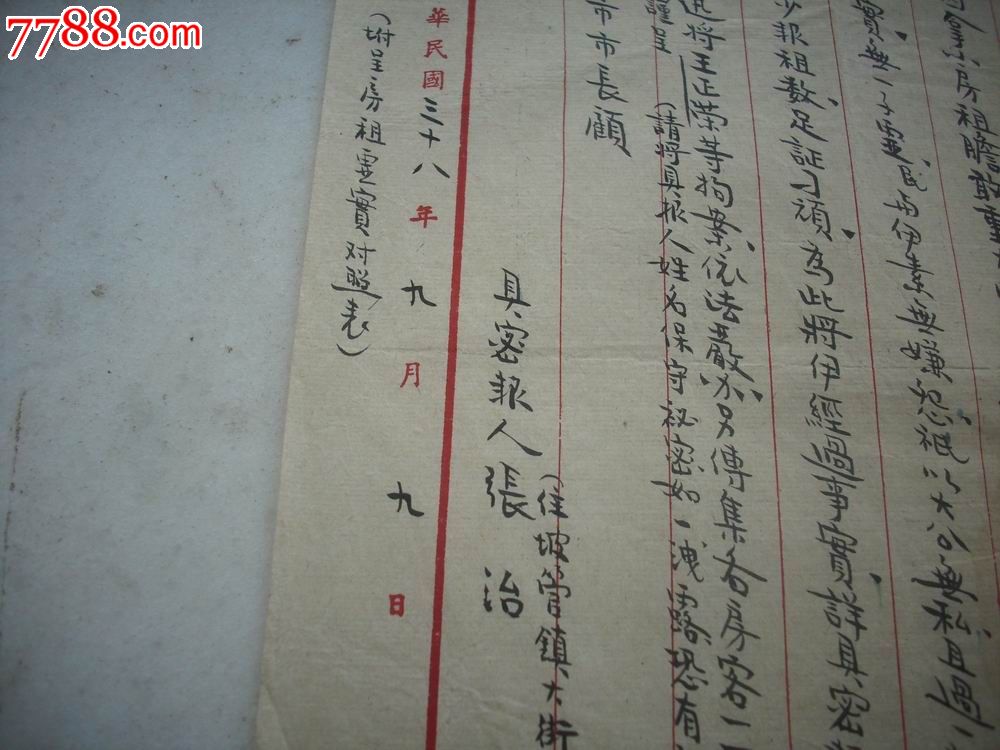 7788.com
房租瞻敢
實無一子虛民與伊素無嫌怨祇以大公無私且過
少報租數足証刁頑為此將伊經過事實詳具密
迅將王正榮等拘案依法嚴办另傳集各房客一
謹呈 (請將具報人姓名保守祕密如一洩露恐有
市市長顧
(住坡管鎮大街
具密報人張治
華民國三十八年九月九日
(坿呈房租虛實对照表)